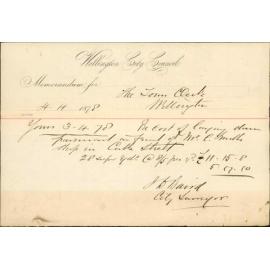 Wellington City Council
Memorandum for
The Town Clerk
Wellington
4. 4. 1878
Yours 3-4-78 Re cost of laying down
pavement in front of Mr C. Smith
shop in Cuba Street
28 super yds @ 8/5 per yd £ 11-15-8
5.17.10
J D Baird
City Surveyor